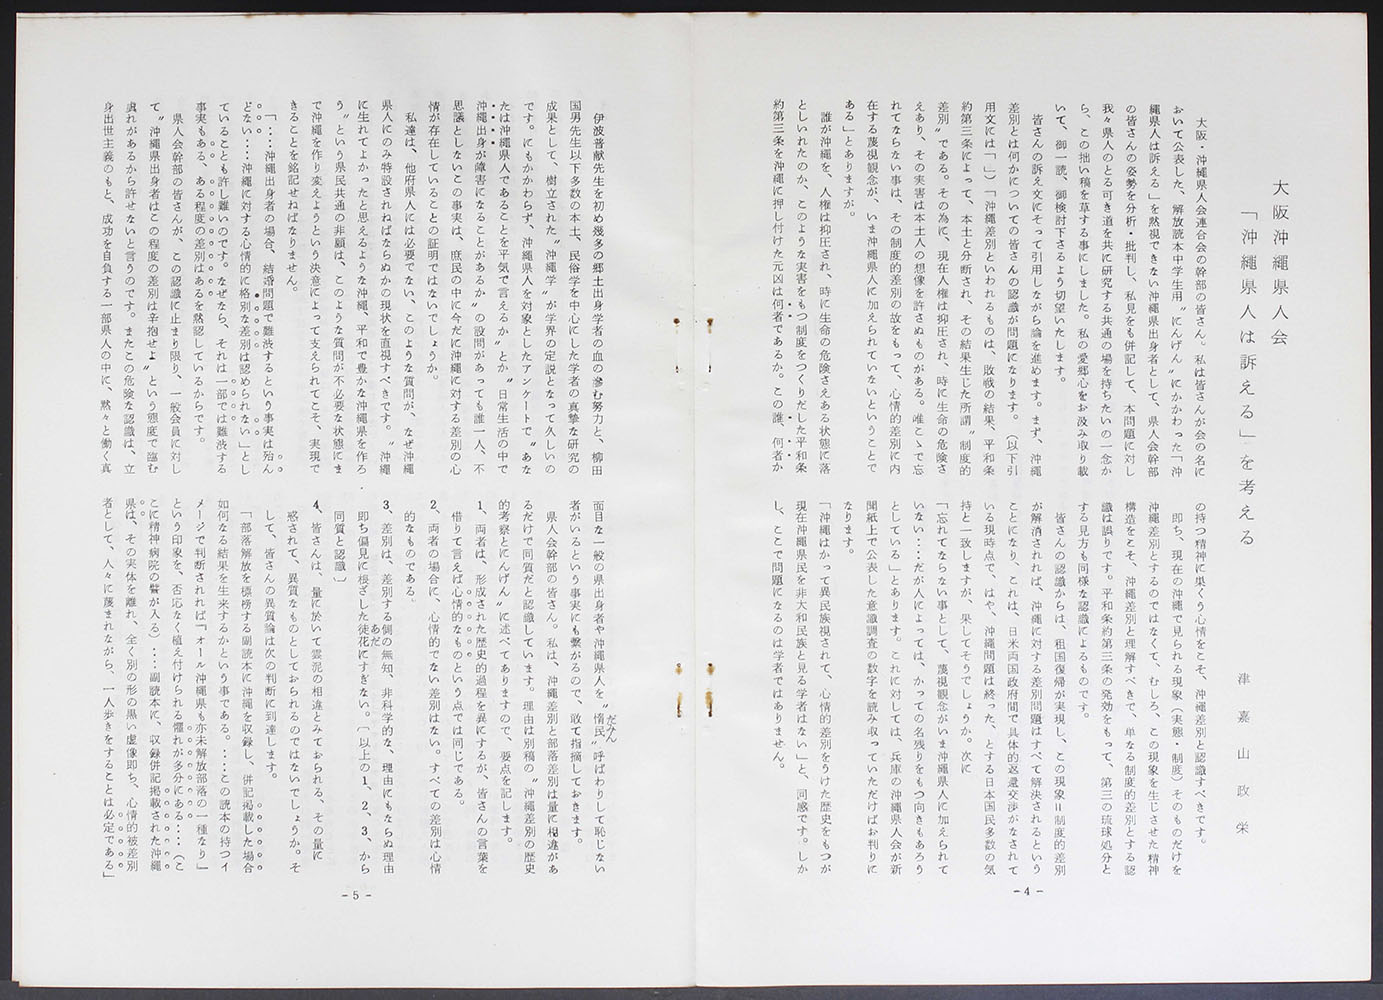 大阪沖縄県人会
「沖縄県人は訴える」を考える
津嘉山政栄
大阪・沖縄県人会連合会の幹部の皆さん。私は皆さんが会の名に
おいて公表した、解放読本中学生用〝にんげん〟にかかわった「沖
縄県人は訴える」を黙視できない沖縄県出身者として、県人会幹部
の皆さんの姿勢を分析・批判し、私見をも併記して、本問題に対し
我々県人のとる可き道を共に研究する共通の場を持ちたいの一念か
ら、この拙い稿を草する事にしました。私の愛郷心をお汲み取り載
いて、御一読、御検討下さるよう切望いたします。
皆さんの訴え文にそって引用しながら論を進めます。まず、沖縄
差別とは何かについての皆さんの認識が問題になります。（以下引
用文には「」）「沖縄差別といわれるものは、敗戦の結果、平和条
約第三条によって、本土と分断され、その結果生じた所謂〝制度的
差別〟である。その為に、現在人権は抑圧され、時に生命の危険さ
えあり、その実害は本土人の想像を許さぬものがある。唯こゝで忘
れてならない事は、その制度的差別の故をもって、心情的差別に内
在する蔑視観念が、いま沖縄県人に加えられていないということで
ある」とありますが。
誰が沖縄を、人権は抑圧され、時に生命の危険さえある状態に落
としいれたのか、このような実害をもつ制度をつくりだした平和条
約第三条を沖縄に押し付けた元凶は何者であるか。この誰、何者か
の持つ精神に巣くう心情をこそ、沖縄差別と認識すべきです。
即ち、現在の沖縄で見られる現象（実態・制度）そのものだけを
沖縄差別とするのではなくて、むしろ、この現象を生じさせた精神
構造をこそ、沖縄差別と理解すべきで、単なる制度的差別とする認
識は誤りです。平和条約第三条の発効をもって、第三の琉球処分と
する見方も同様な認識によるものです。
皆さんの認識からは、祖国復帰が実現し、この現象＝制度的差別
が解消されれば、沖縄に対する差別問題はすべて解決されるという
ことになり、これは、日米両国政府間で具体的返還交渉がなされて
いる現時点で、はや、沖縄問題は終った、とする日本国民多数の気
持と一致しますが、果してそうでしょうか。次に
「忘れてならない事として、蔑視観念がいま沖縄県人に加えられて
いない‥‥だが人によっては、かっての名残りをもつ向きもあろう
としている」とあります。これに対しては、兵庫の沖縄県人会が新
聞紙上で公表した意識調査の数字を読み取っていただけばお判りに
なります。
「沖縄はかって異民族視されて、心情的差別をうけた歴史をもつが
現在沖縄県民を非大和民族と見る学者はない」と、同感です。しか
し、ここで問題になるのは学者ではありません。
-4-
伊波普献先生を初め幾多の郷土出身学者の血の滲む努力と、柳田
国男先生以下多数の本土、民俗学を中心にした学者の真摯な研究の
成果として、樹立された〝沖縄学〟が学界の定説となって久しいの
です。にもかかわらず、沖縄県人を対象としたアンケートで〝あな
たは沖縄県人であることを平気で言えるか〟とか〝日常生活の中で
沖縄出身が障害になることがあるか〟の設問があっても誰一人、不
思議としないこの事実は、庶民の中に今だに沖縄に対する差別の心
情が存在していることの証明ではないでしょうか。
私達は、他府県人には必要でない、このような質問が、なぜ沖縄
県人にのみ特設されねばならぬかの現状を直視すべきです。〝沖縄
に生れてよかったと思えるような沖縄、平和で豊かな沖縄県を作ろ
う〟という県民共通の非願は、このような質問が不必要な状態にま
で沖縄を作り変えようという決意によって支えられてこそ、実現で
きることを銘記せねばなりません。
「‥‥沖縄出身者の場合、結婚問題で難渋するという事実は殆ん
どない‥‥沖縄に対する心情的に格別な差別は認められない」とし
ていることも許し難いのです。なぜなら、それは一部では難渋する
事実もある、ある程度の差別はあるを黙認しているからです。
県人会幹部の皆さんが、この認識に止まり限り、一般会員に対し
て〝沖縄県出身者はこの程度の差別は辛抱せよ〟という態度で臨む
虞れがあるから許せないと言うのです。またこの危険な認識は、立
身出世主義のもと、成功を自負する一部県人の中に、黙々と働く真
面目な一般の県出身者や沖縄県人を〝惰民（だみん）〟呼ばわりして恥じない
者がいるという事実にも繋がるので、敢て指摘しておきます。
県人会幹部の皆さん。私は、沖縄差別と部落差別は量に相違があ
るだけで同質だと認識しています。理由は別稿の〝沖縄差別の歴史
的考察とにんげん〟に述べてありますので、要点を記します。
1、両者は、形成された歴史的過程を異にするが、皆さんの言葉を
借りて言えば心情的なものという点では同じである。
2、両者の場合に、心情的でない差別はない。すべての差別は心情
的なものである。
3、差別は、差別する側の無知、非科学的な、理由にもならぬ理由
即ち偏見に根ざした徒花（あだ）にすぎない。〔以上の1、2、3、から
同質と認識〕
4、皆さんは、量に於いて雲泥の相違とみておられる、その量に
惑されて、異質なものとしておられるのではないでしょうか。そ
して、皆さんの異質論は次の判断に到達します。
「部落解放を標榜する副読本に沖縄を収録し、併記掲載した場合
如何なる結果を生来するかという事である。‥‥この読本の持つイ
メージで判断されれば『オール沖縄県も亦未解放部落の一種なり』
という印象を、否応なく植え付けられる懼れが多分にある‥‥（こ
こに精神病院の譬が入る）‥‥副読本に、収録併記掲載された沖縄
県は、その実体を離れ、全く別の形の黒い虚像即ち、心情的被差別
者として、人々に蔑まれながら、一人歩きをすることは必定である」
-5-